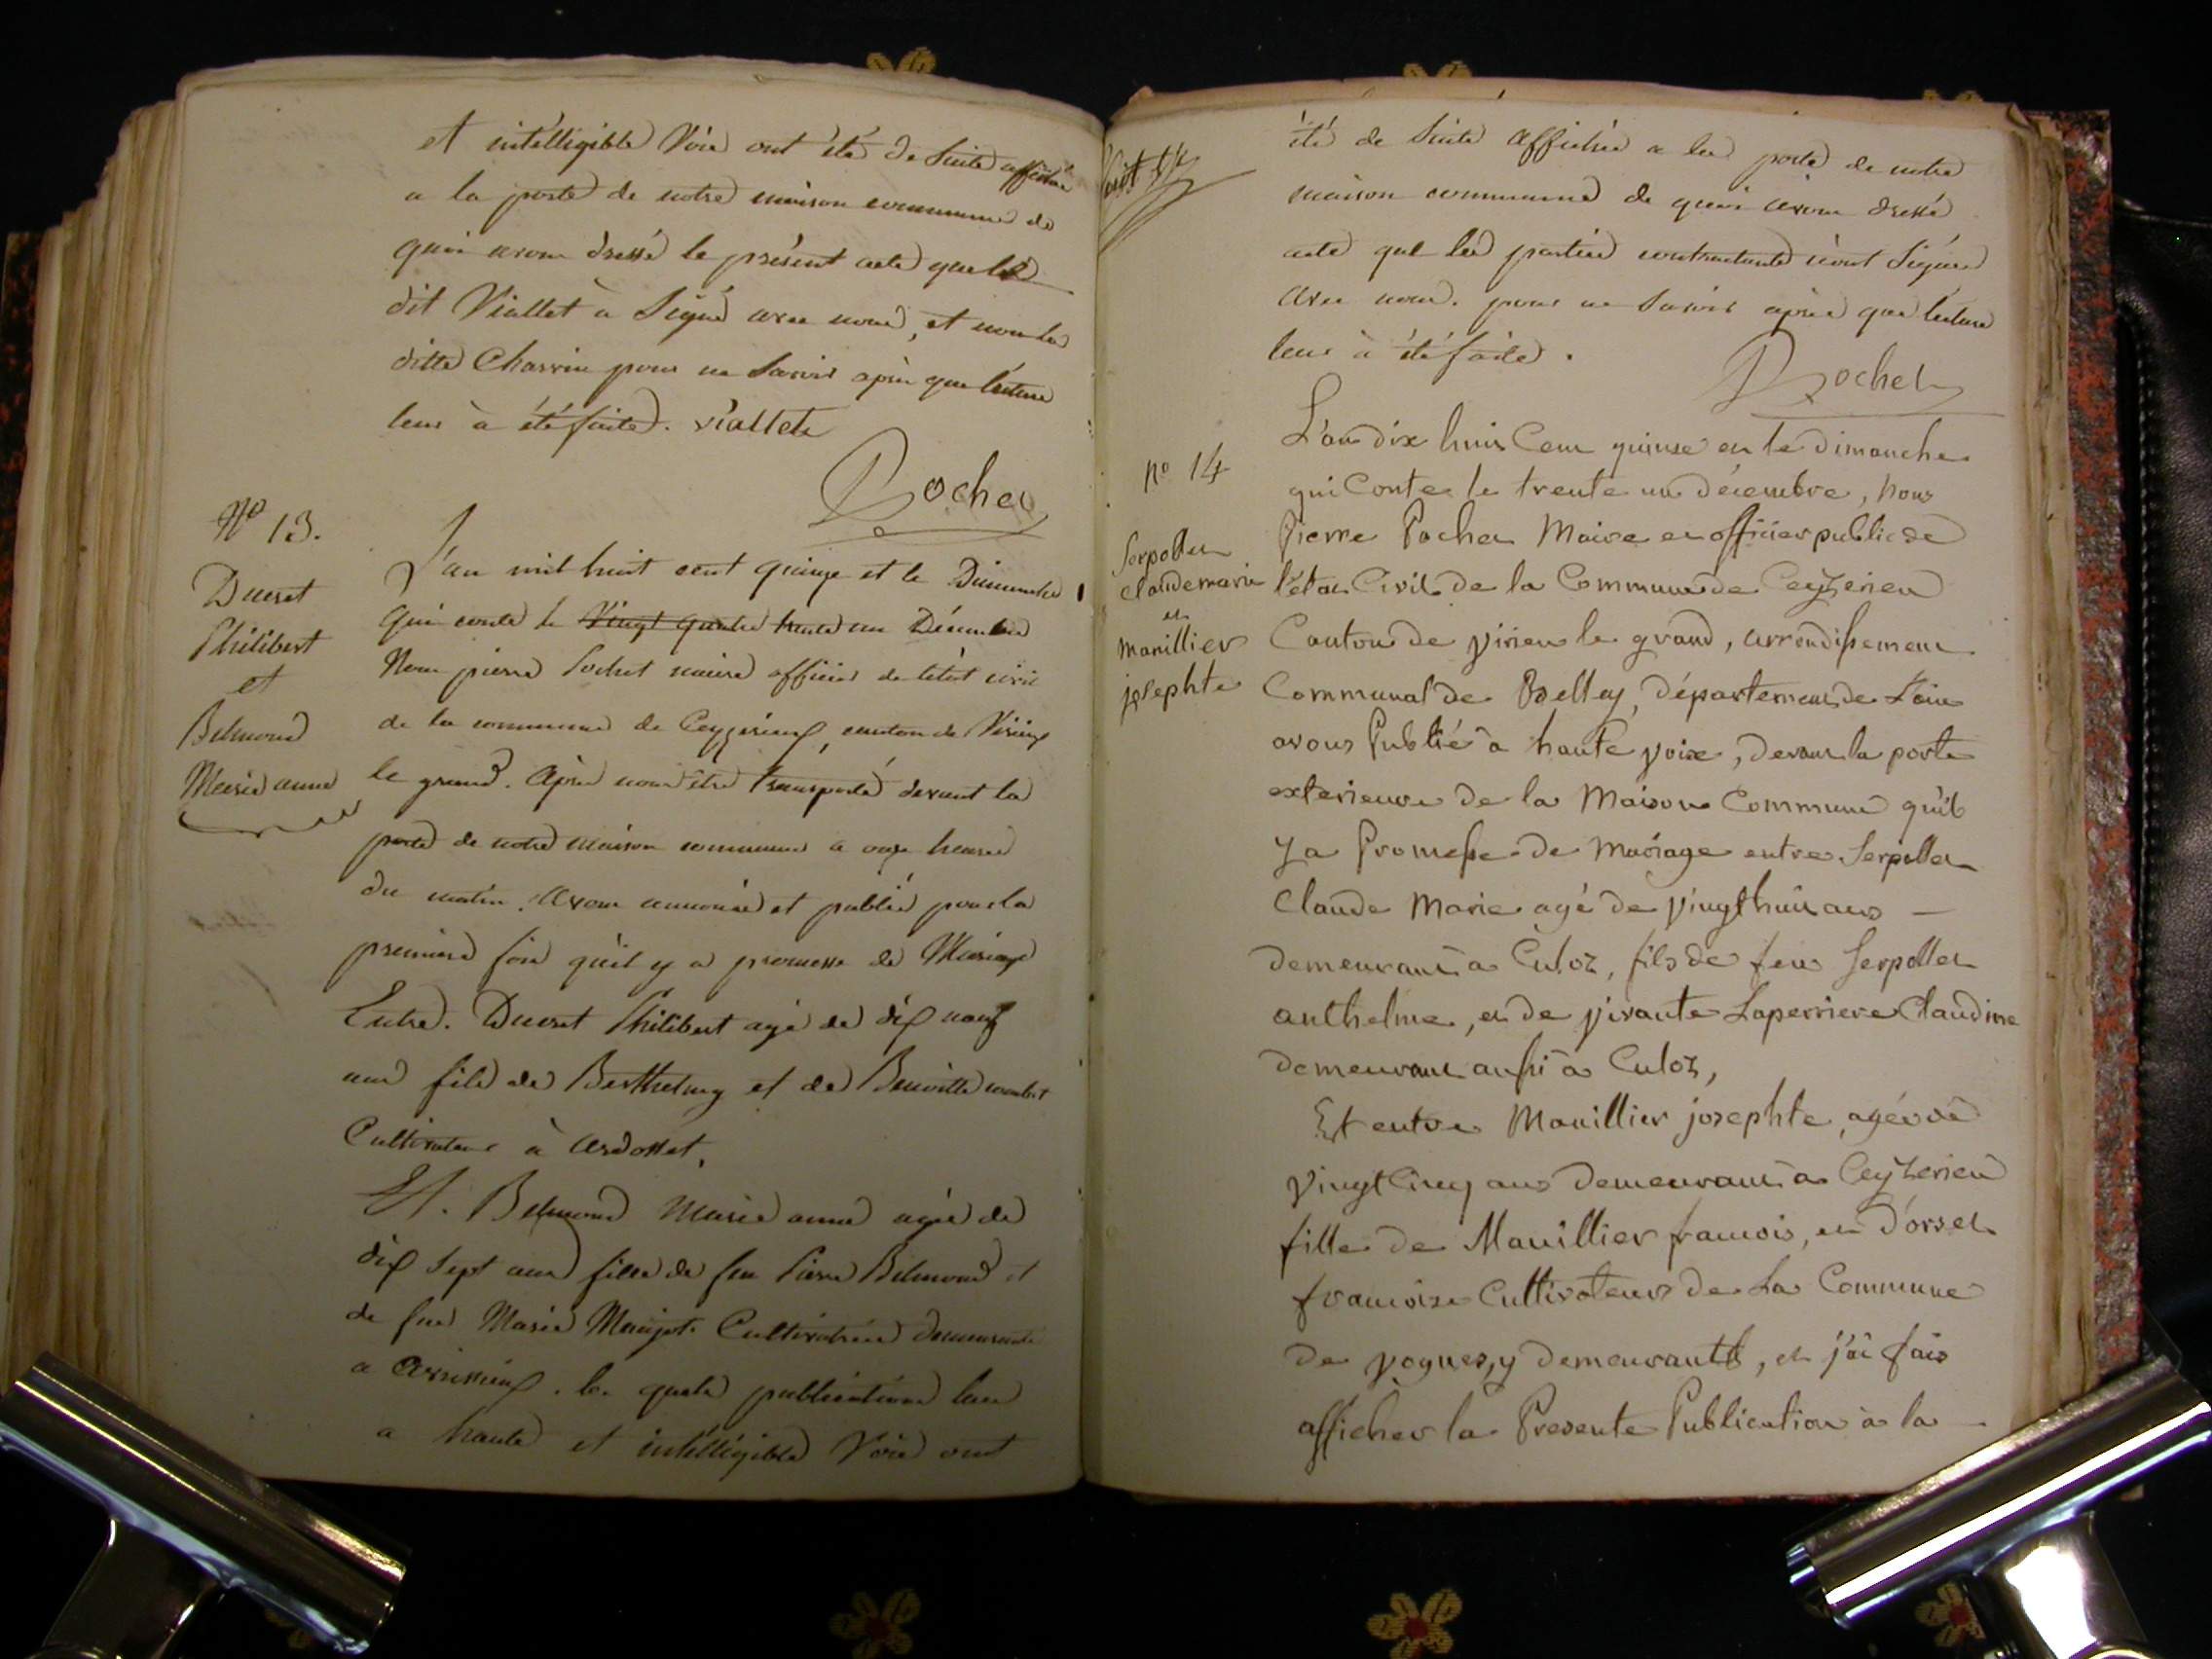 et intélligible Voix ont été de Suite affiché
a la porte de notre maison commune de
quoi avons dréssé le présent acte que le
dit Viallet à Signé avec nous, et non la
ditte Charvin pour ne Savoir après que lécture
leur à été faite. viallet
Pochet
N° 13.
Ducret
Philibert
et
Belmond
Marie anne
L'an mil huit cent quinze et le Dimanche
qui conte le Vingt quatre trente un Décembre
Nous pierre Pochet maire officier de létat civil
de la commune de Ceyzerieux, canton de Virieux
le grand. Après nous être transporté devant la
porte de notre maison commune a onze heures
du matin. Avons annoncé et publié pour la
premiere fois qu'il y a promesse de Mariage
Entre. Ducret Philibert agé de dix neuf
ans fils de Berthelmy et de Benoitte
Cultivateur à ardosset,
Et. Belmond Marie anne agée de
dix Sept ans fille de feu Pierre Belmond et
de feue Marie Cultivatrice demeurante
a avrissieux. les quels publications lues
a haute et intélligible Voix ont
été de Suite Affichés a la porte de notre
maison commune de quoi avons dréssé
acte que les parties contractantes n'ont Signés
avec nous. pour ne Savoir après que lécture
leur à été faite.
Pochet
n° 14
Serpollet
claude marie
et
manillier
josephte
L'an dix huit Cent quinse et le dimanche
qui Conte le trente un décembre, nous
Pierre Pochet Maire et officier public de
l'état Civil de la Commune de Ceyzerieu
Canton de virieu le grand, arrondissement
Communal de Belley, département de L'ain
avons Publié à haute voix, devant la porte
exterieure de la Maison Commune qu'il
y a Promesse de Mariage entre Serpollet
Claude Marie agé de vingt huit ans —
demeurant a Culoz, fils de feu Serpollet
anthelme, et de vivante Laperriere Claudine
demeurant aussi à Culoz,
Et entre Manillier josephte, agée de
vingt Cinq ans demeurant a Ceyzerieu
fille de Manillier francois, et d'orset
francoise Cultivateurs de La Commune
de vognes, y demeurants, et j'ai fais
afficher la Presente Publication à la —